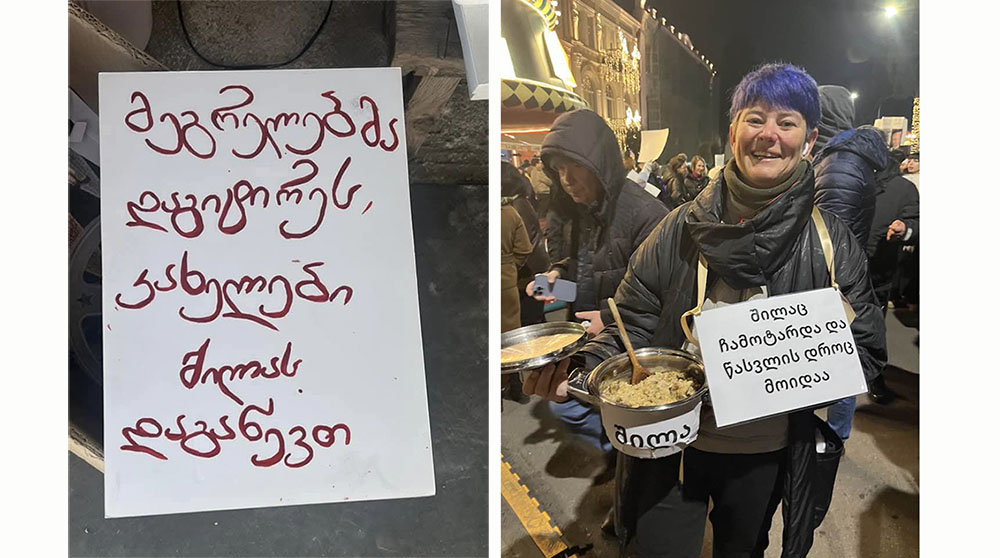 მეგრელებმა
დაგიტირეს,
კახელები
შილას
დაგახევთ
შილაც
ჩამოტარდა და
წასვლის დროც
მოიდაა
შილა